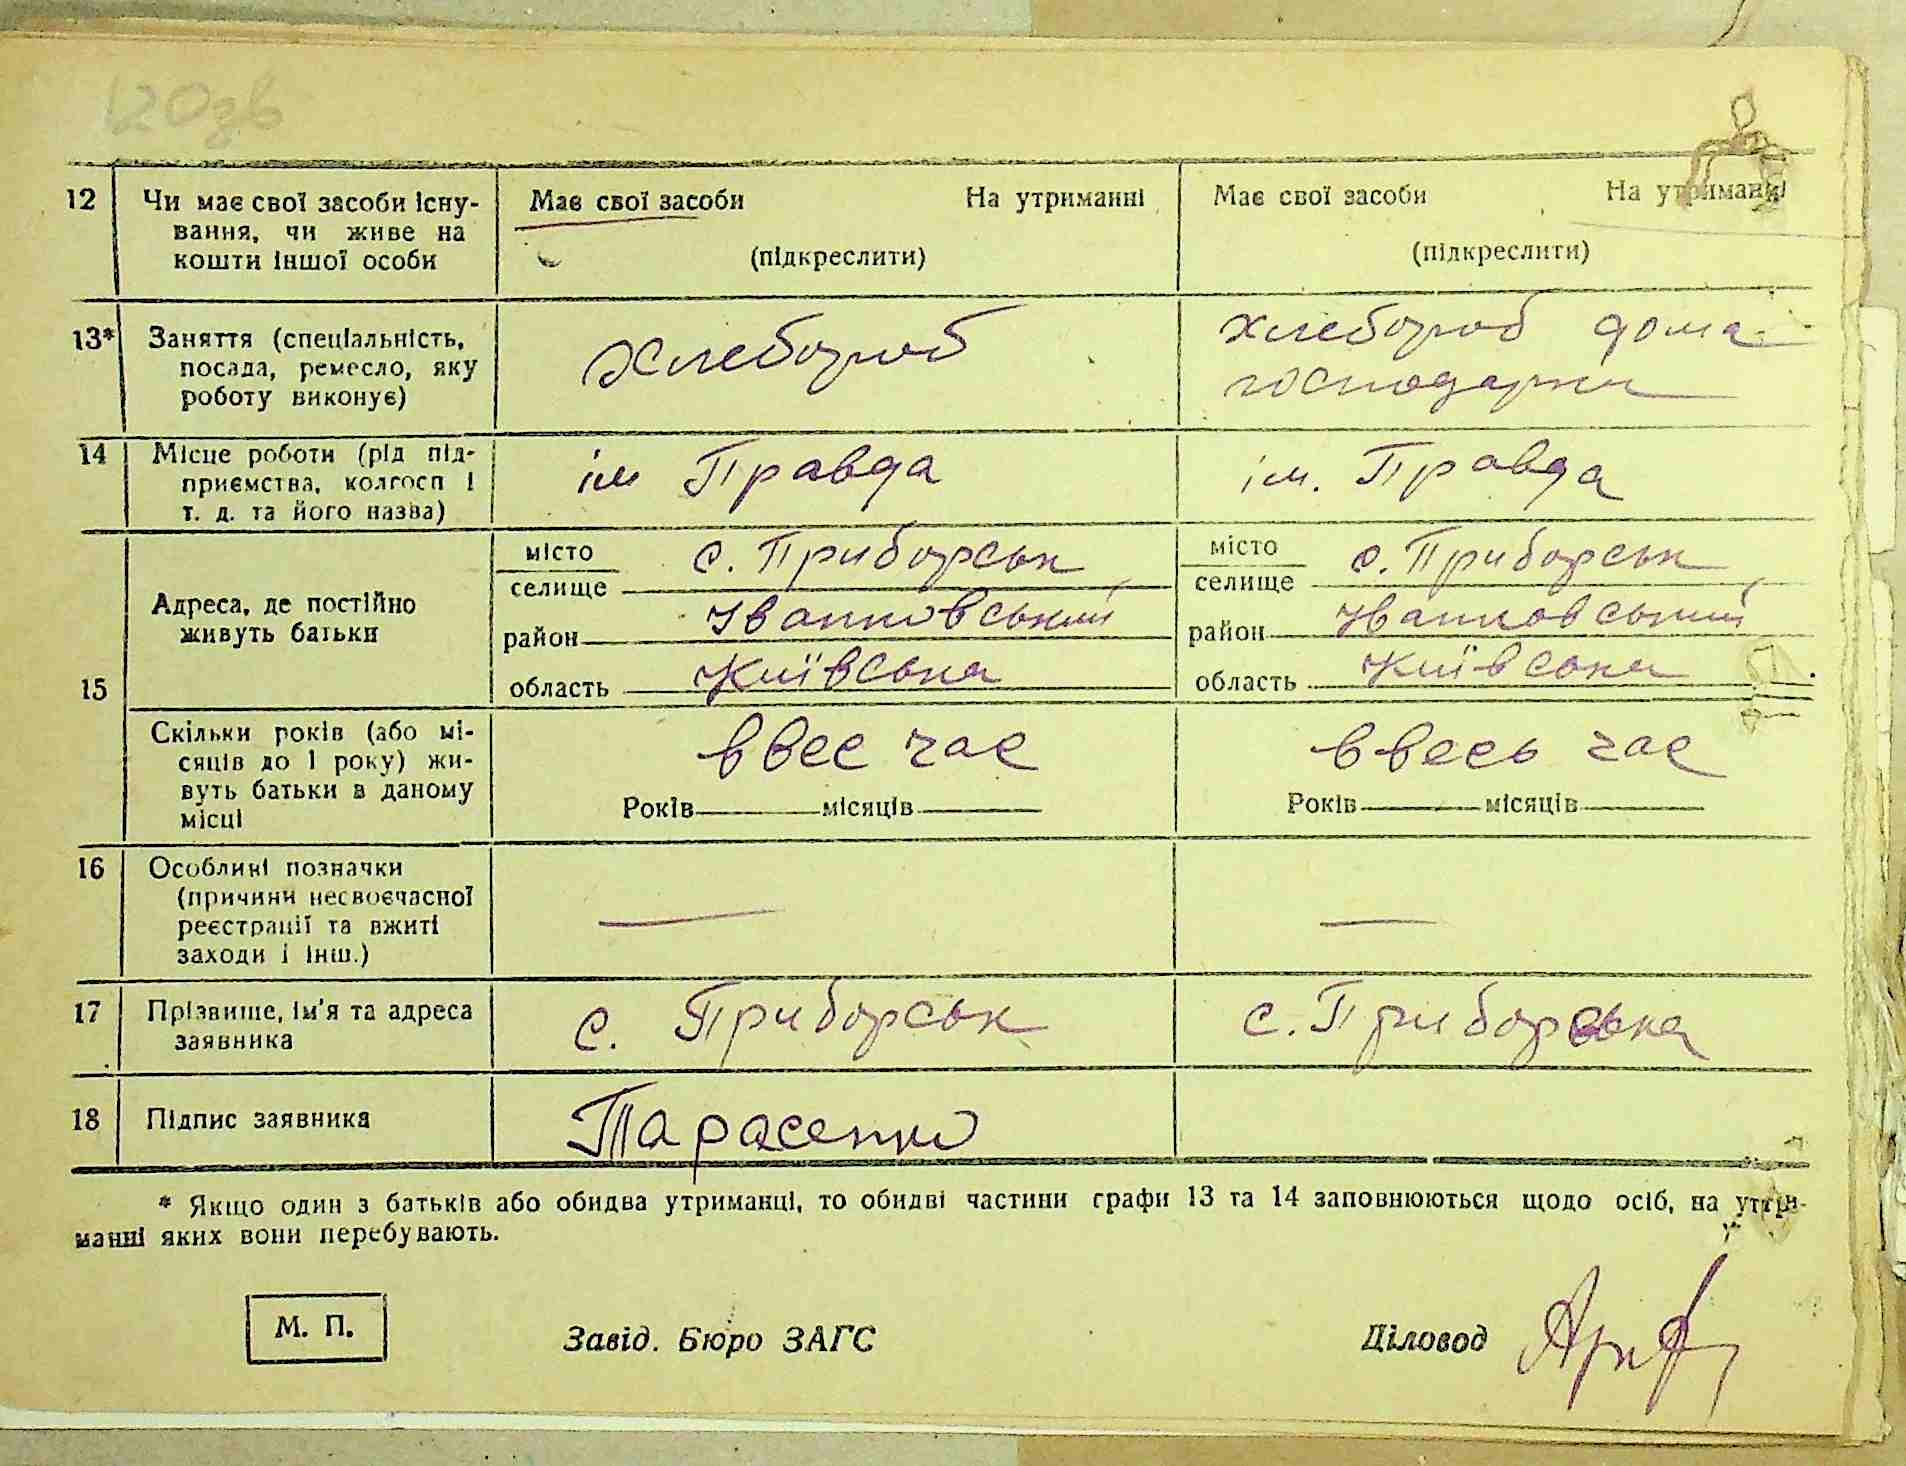 120зв
12 Чи має свої засоби існу- Має свої засоби На утриманні Має свої засоби На утриманні
вання, чи живе на
кошти іншої особи (підкреслити) (підкреслити)
13* Заняття (спеціальність, Хлебороб хлебороб дома-
посада, ремесло, яку господарка
роботу виконує)
14 Місце роботи (рід під- ім Правда ім. Правда
приємства, колгосп і
т. д. та його назва)
15 Адреса, де постійно
живуть батьки
місто с. Приборськ місто с. Приборськ
селище селище
район Іванковський район Іванковський
область Київська область Київська
Скільки років (або мі- ввес час ввесь час
сяців до 1 року) жи-
вуть батьки в даному Років місяців Років місяців
місці
16 Особливі позначки
(причини несвоєчасної — —
реєстрації та вжиті
заходи і інш.)
17 Прізвище, ім'я та адреса с. Приборськ с. Приборська
заявника
18 Підпис заявника Тарасенко
* Якщо один з батьків або обидва утриманці, то обидві частини графи 13 та 14 заповнюються щодо осіб, на утри-
манні яких вони перебувають.
М. П. Завід. Бюро ЗАГС Діловод